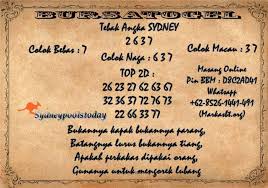 BURSATOGEL
Tebak Angka SYDNEY
2 6 3 7
Colok Bebas : 7
Colok Macau : 3 7
Colok Naga : 6 3 7
TOP 2D :
26 23 27 62 63 67
32 36 37 72 76 73
22 66 33 77
Masang Online
Pin BBM : D8C2AD41
Whatsapp
+62-8526-1441-491
(Markasbt.org)
Sydneypoolstoday
Bukannya kapak bukannya parang,
Batangnya lurus bukannya tiang,
Apakah perkakas dipakai orang,
Gunanya untuk mengorek lubang